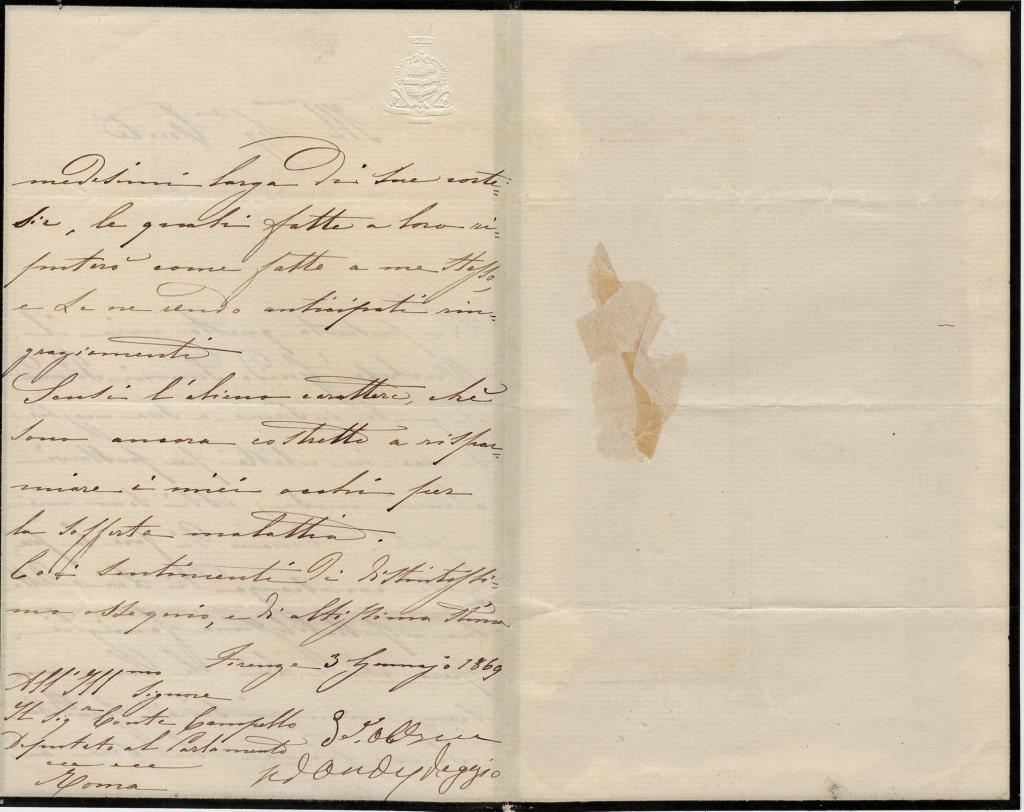 medesimi larga di sue corte=
sie, le quali fatte a loro ri=
puterò come fatte a me stesso,
e Le ne rendo anticipati rin=
graziamenti
Scusi l'alieno carattere, chè
sono ancora costretto a rispar=
miare i miei occhi per
la sofferta malattia.
Coi sentimenti di distintissi=
mo ossequio, e di altissima stima
Firenze 3 Gennajo 1869
All'Illmo
Signore
Il Sigr Conte Campello
Deputato al Parlamento
Roma